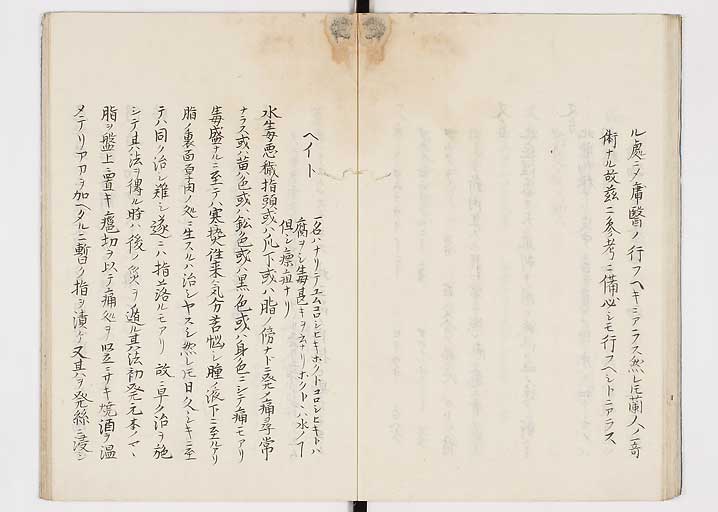 ル處ニメ庸醫ノ行フヘキニアラス然レ𪜈蘭人ノ奇
術ナル故茲ニ参考ニ備必シモ行フヘシトニアラス
ヘイト
一名ハナリテエムコロシヒキホクトコロシヒキトハ
腐ヲシ毒甚キヲ云ナリホクトハ水ノ
但シ瘭疽ナリ
水毒悪穢指頭或ハ爪下或ハ脂ノ傍ナドニ発ノ痛尋常
ナラス或ハ黄色或ハ鉛色或ハ黒色或ハ身ノ色ニシテ痛モアリ
毒盛ナルニ至テハ寒熱往来シ気分苦悩シ腫液下ニ至ルアリ
脂ノ裏面厚肉ノ処ニ生スルハ治シヤスシ然レ𪜈日久シキニ至
テハ同ク治シ難シ遂ニハ指落ルモアリ故ニ早ク治ヲ施
シテ其法ヲ得ル時ハ後ノ災ヲ遁ル其法初発ニ
脂ヲ盤上ニ置キ切ヲ以テ痛処ヲサキ焼酒ヲ温
メテリアヲ加ヘタルニ暫ク指ヲ漬ケ又其ヲ発絲ニ浸シ